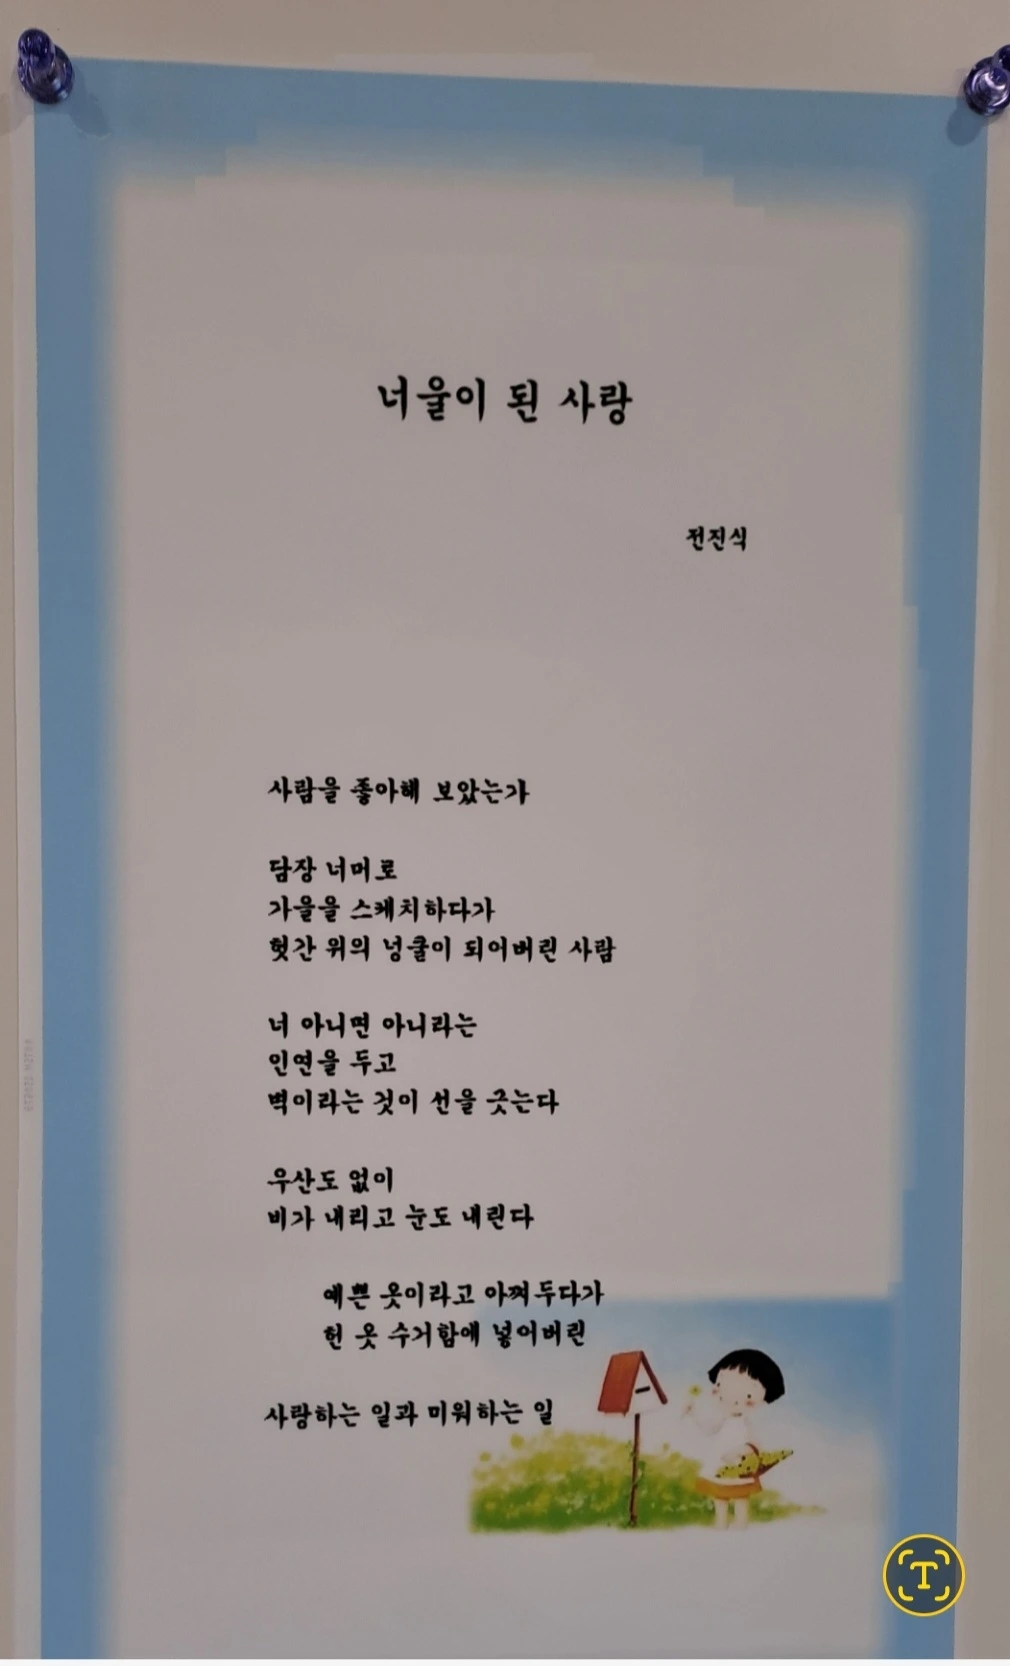 너울이 된 사랑
전진식
사람을 좋아해 보았는가
담장 너머로
가을을 스케치하다가
헛간 위의 넝쿨이 되어버린 사람
너 아니면 아니라는
인연을 두고
벽이라는 것이 선을 긋는다
우산도 없이
비가 내리고 눈도 내린다
예쁜 옷이라고 아껴두다가
헌 옷 수거함에 넣어버린
사랑하는 일과 미워하는 일